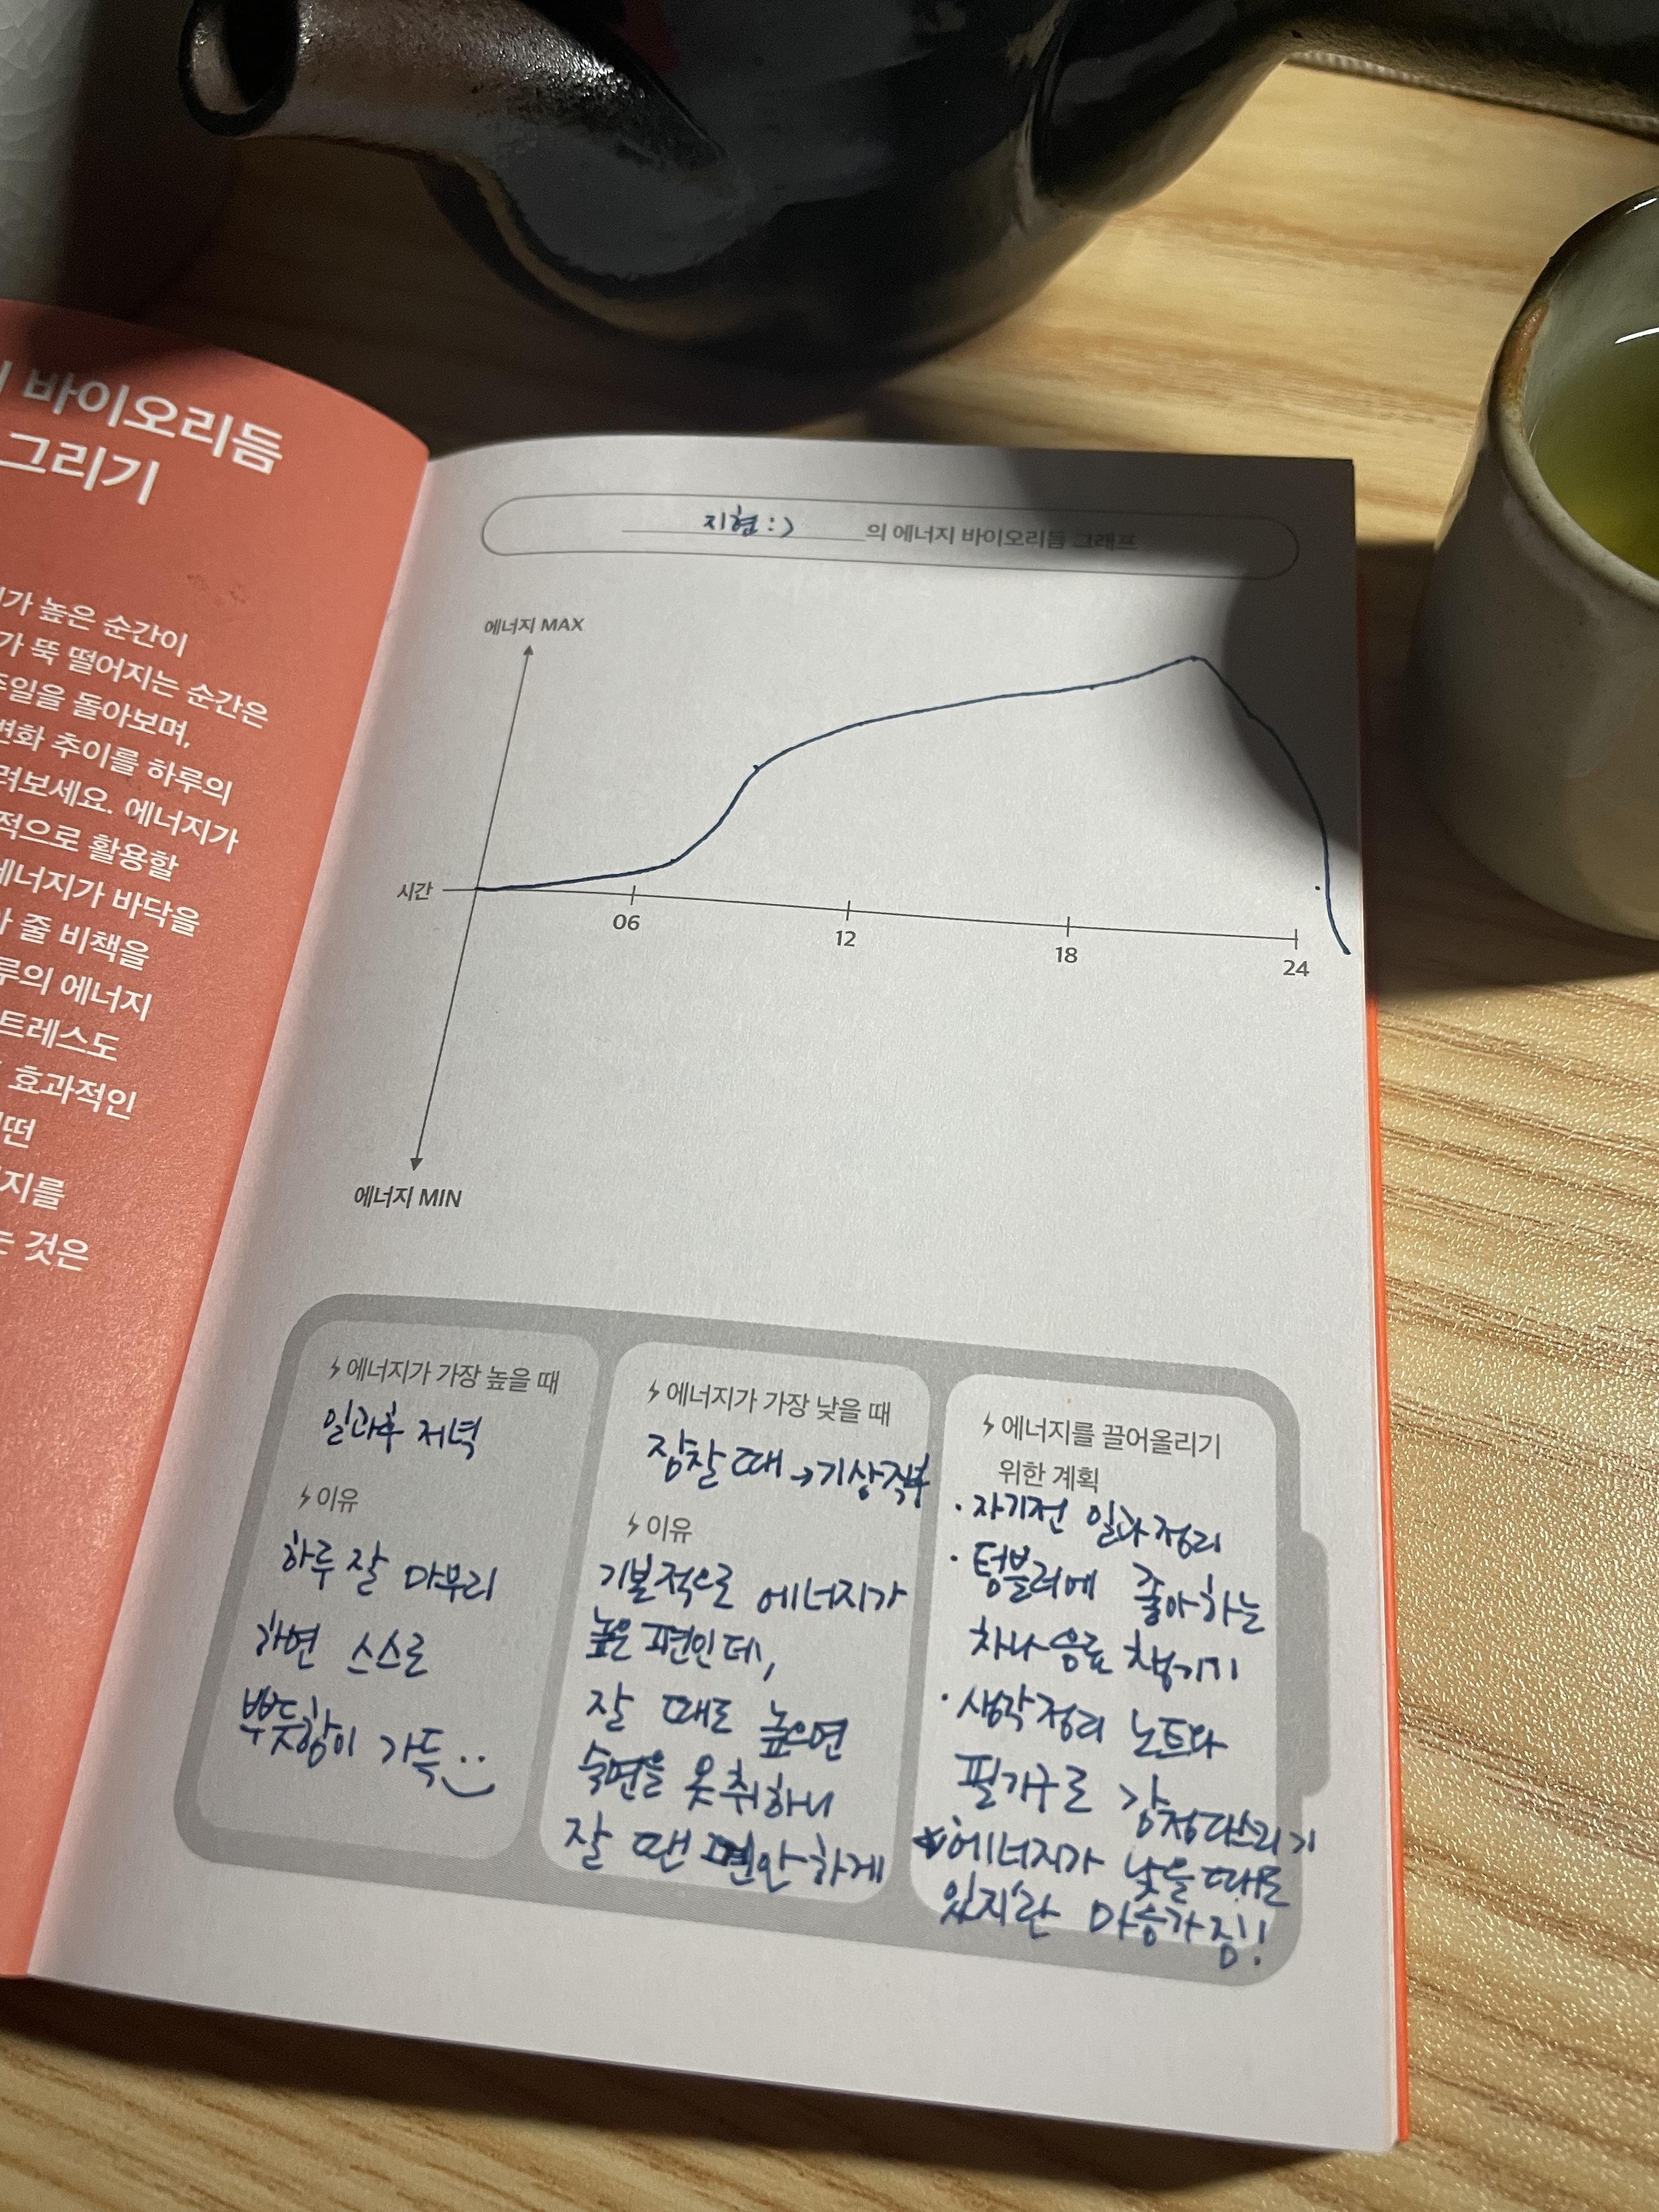 바이오리듬
그리기
가 높은 순간이
가 뚝 떨어지는 순간은
주일을 돌아보며,
변화 추이를 하루의
려보세요. 에너지가
적으로 활용할
에너지가 바닥을
줄 비책을
루의 에너지
트레스도
효과적인
떤
지를
것은
지현:) 의 에너지 바이오리듬 그래프
에너지 MAX
시간
06
12
18
24
에너지 MIN
에너지가 가장 높을 때
일과후 저녁
이유
하루 잘 마무리
하면 스스로
뿌듯함이 가득
에너지가 가장 낮을 때
잠잘 때 → 기상직후
이유
기본적으로 에너지가
높은 편인데,
잘 때도 높으면
숙면을 못취하니
잘 땐 편안하게
에너지를 끌어올리기
위한 계획
· 자기전 일과정리
· 텀블러에 좋아하는
차나 음료 챙기기
· 생각정리 노트와
필기구로 감정다스리기
'에너지가 낮을때도
있지'란 마음가짐!!